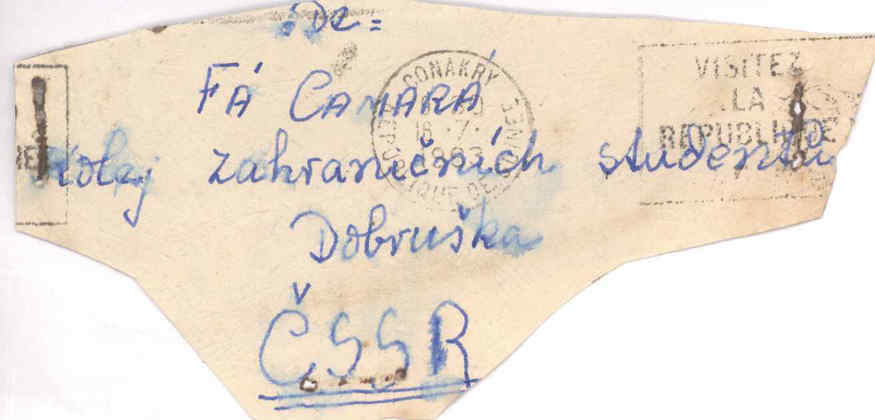 De =
FÁ CAMARÁ
Kolej zahraničních studentů
Dobruška
ČSSR
CONAKRY
18 - 7
VISITEZ
LA
REPUBLIQUE